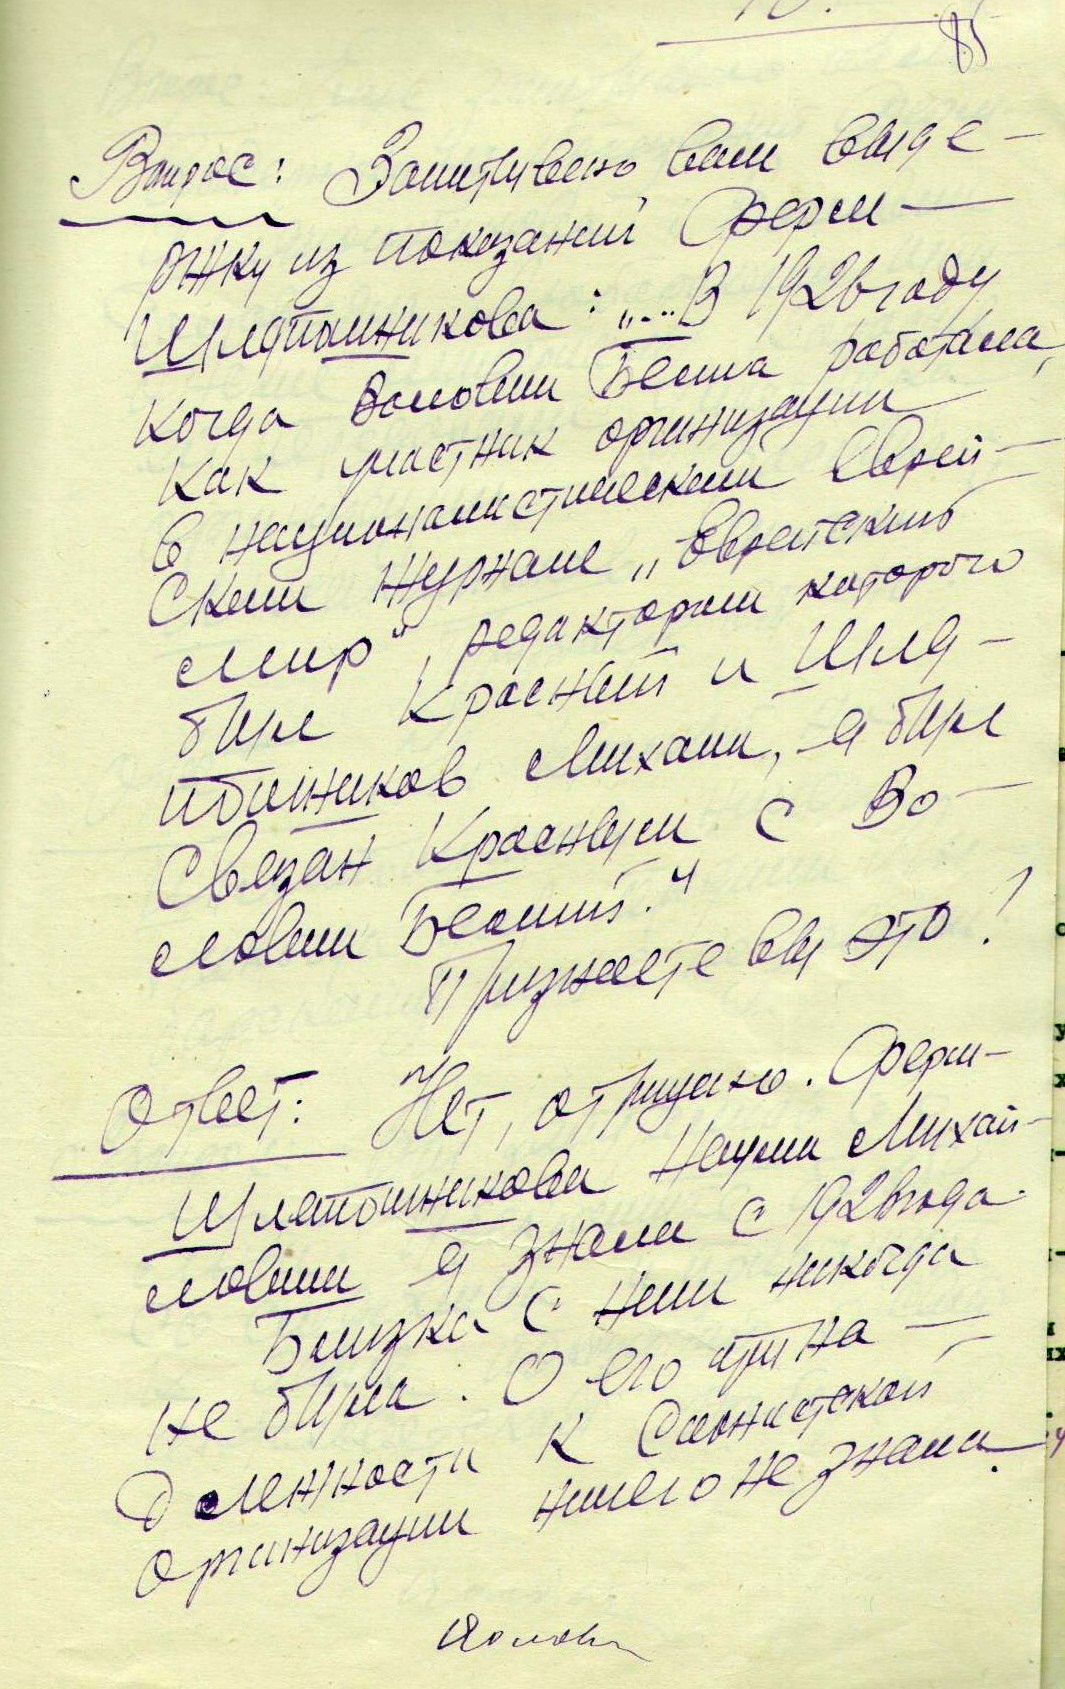 85
Вопрос: Зачитываю вам выде-
ржку из показаний Ферм-
Шляпошникова: „... В 1926 году
когда Волович Белла работала,
как участник организации
в националистическом Еврей-
ском журнале „Еврейский
мир“, редактором которого
был Красный и Шля-
пошников Михаил, я был
связан Красным с Во-
лович Беллой.“
Признаете вы это?
Ответ: Нет, отрицаю. Ферм-
Шляпошникова Наума Михай-
ловича я знала с 1926 года.
Близка с ним никогда
не была. О его прина-
длежности к Сионистской
организации ничего не знала.